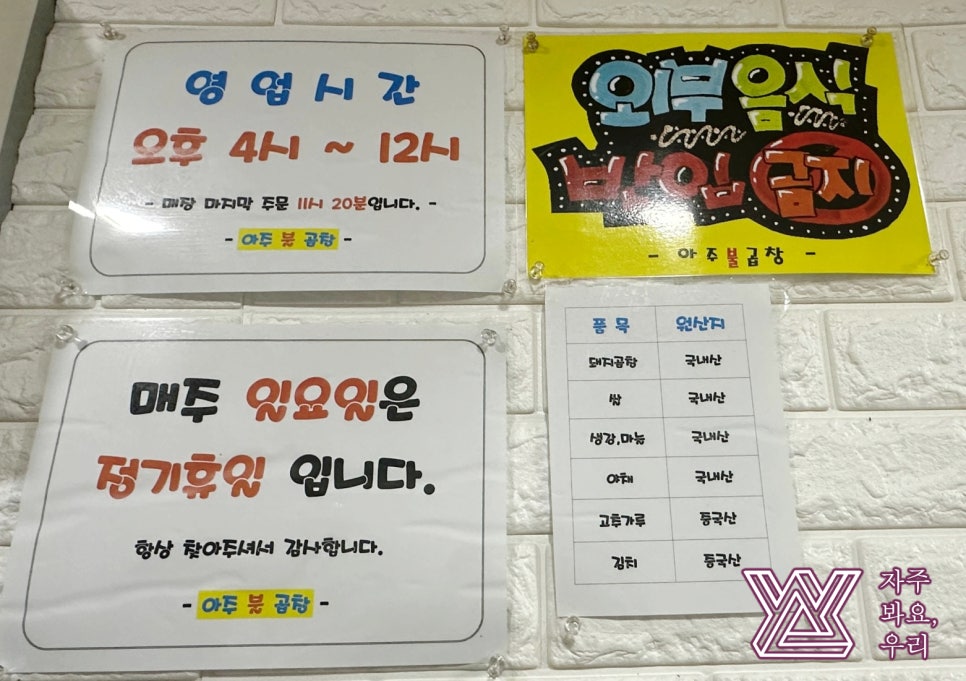 영업시간
오후 4시 ~ 12시
- 매장 마지막 주문 11시 20분입니다. -
- 아주 불 곱창 -
외부 음식
반입 금지
- 아주불곱창 -
매주 일요일은
정기휴일 입니다.
항상 찾아주셔서 감사합니다.
- 아주 불 곱창 -
품목 원산지
돼지곱창 국내산
쌀 국내산
생강,마늘 국내산
야채 국내산
고추가루 중국산
김치 중국산
자주
봐요,
우리